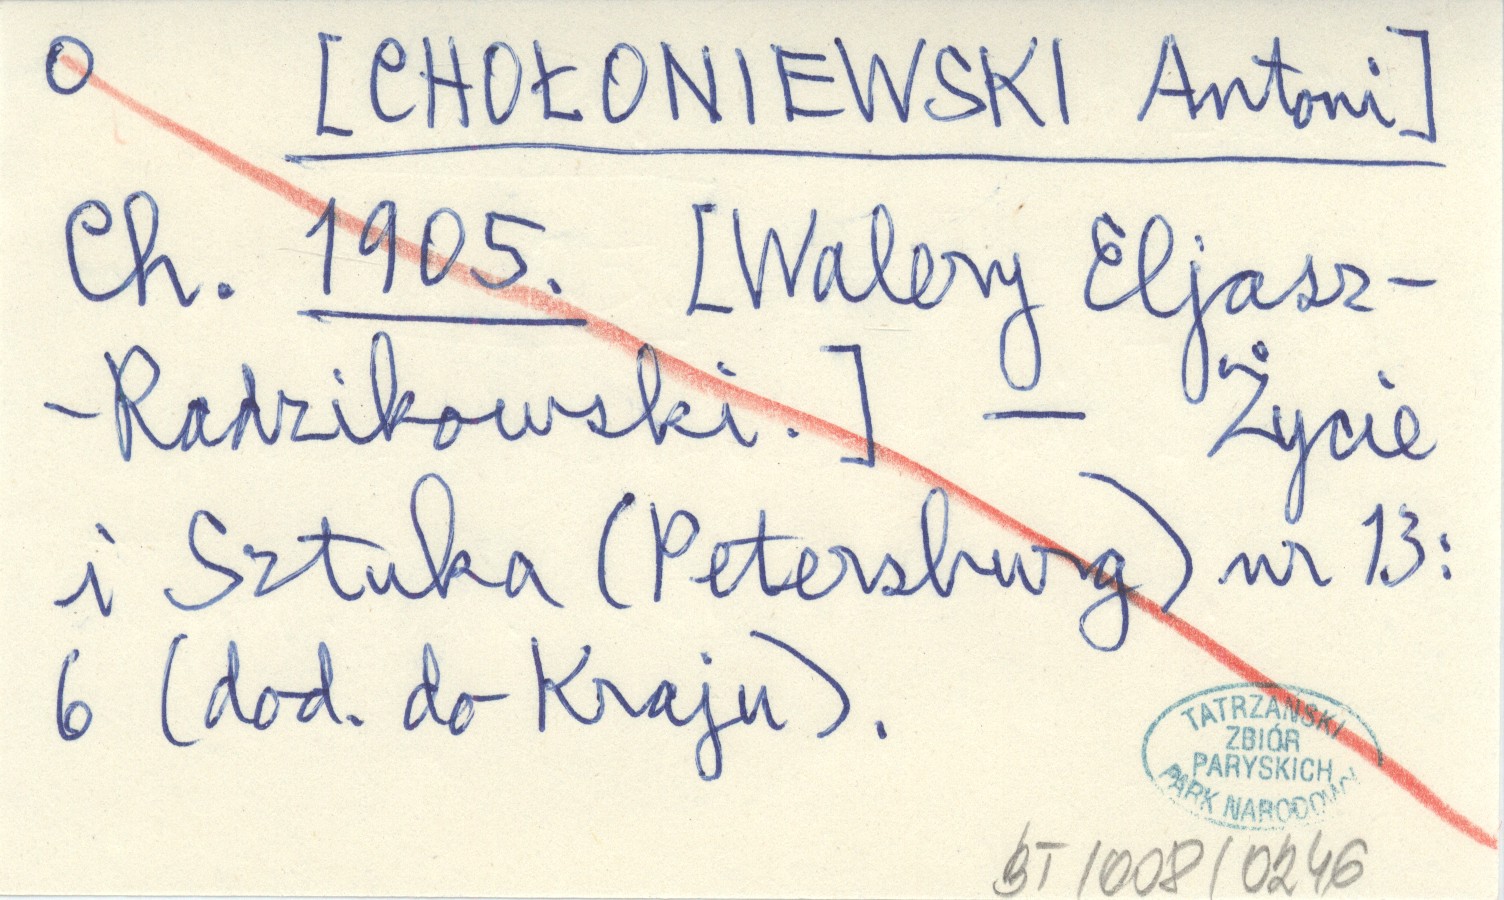 O [CHOŁONIEWSKI Antoni]
Ch. 1905. [Walery Eljasz-
-Radzikowski.] — Życie
i Sztuka (Petersburg) nr 13:
6 (dod. do Kraju).
TATRZAŃSKI
ZBIÓR
PARYSKICH
PARK NARODOWY
BT/008/0246